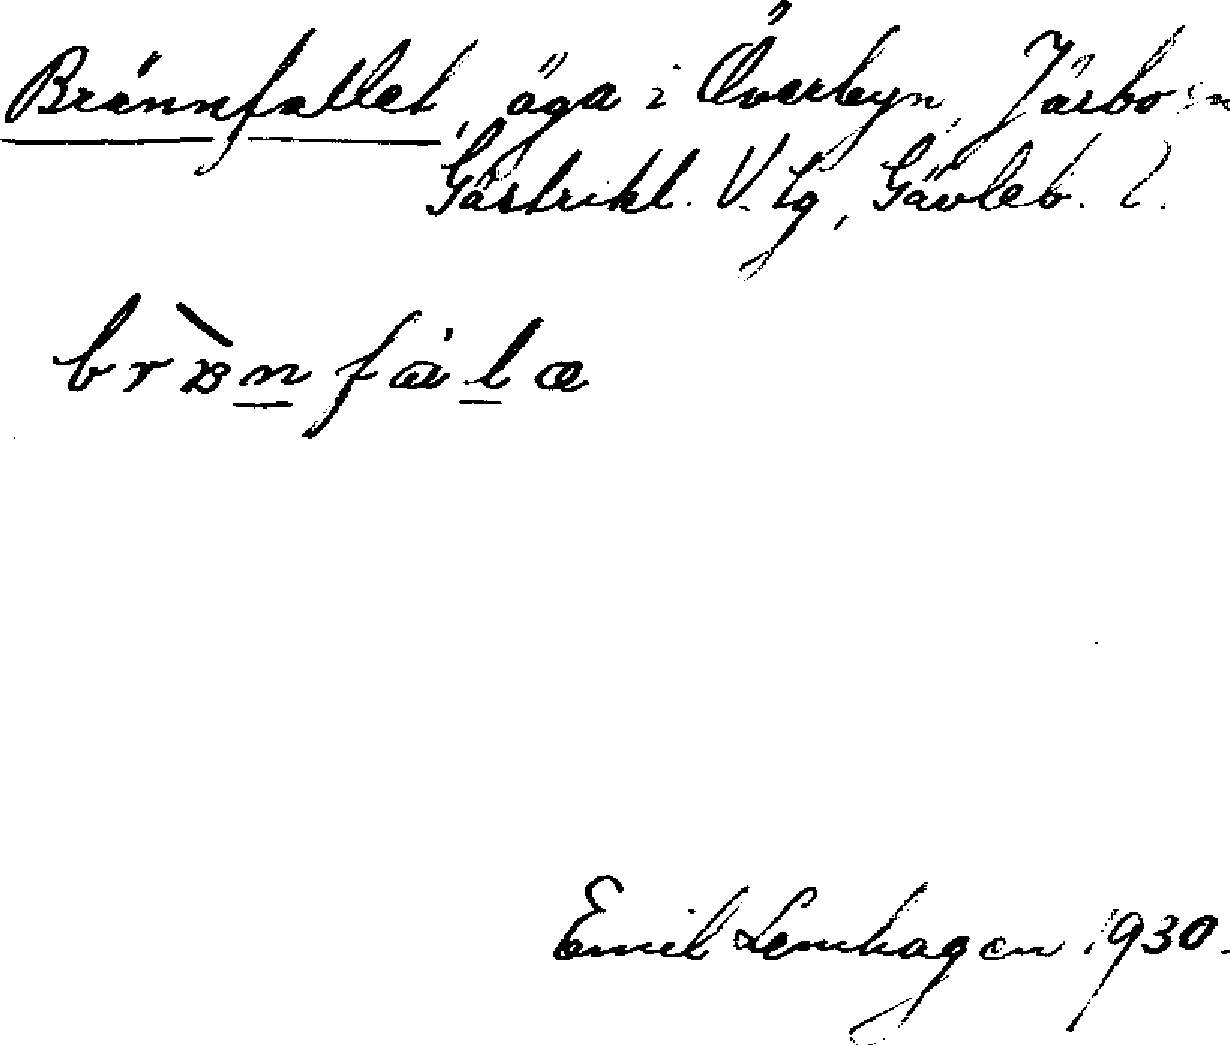 Brännfallet, äga i Överbyn, Järbo sn
Gästrikl. V. tg, Gävleb. l.
Emil Lenhagen 1930.